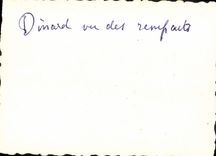 Dinard vu des remparts